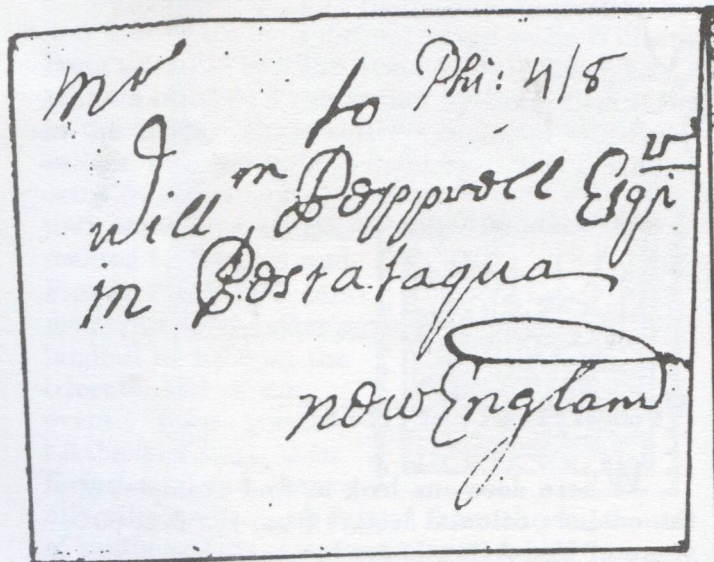 Mr to Phi: 4/8
Willm Pepprell Esqr
in Pescataqua
New England